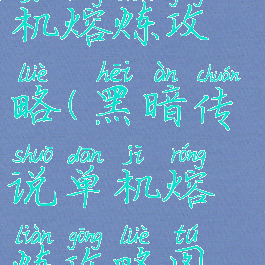 机熔炼攻
lüè hēi àn chuán
略(黑暗传
shuō dān jī róng
说单机熔
liàn gōng lüè tú
炼攻略图